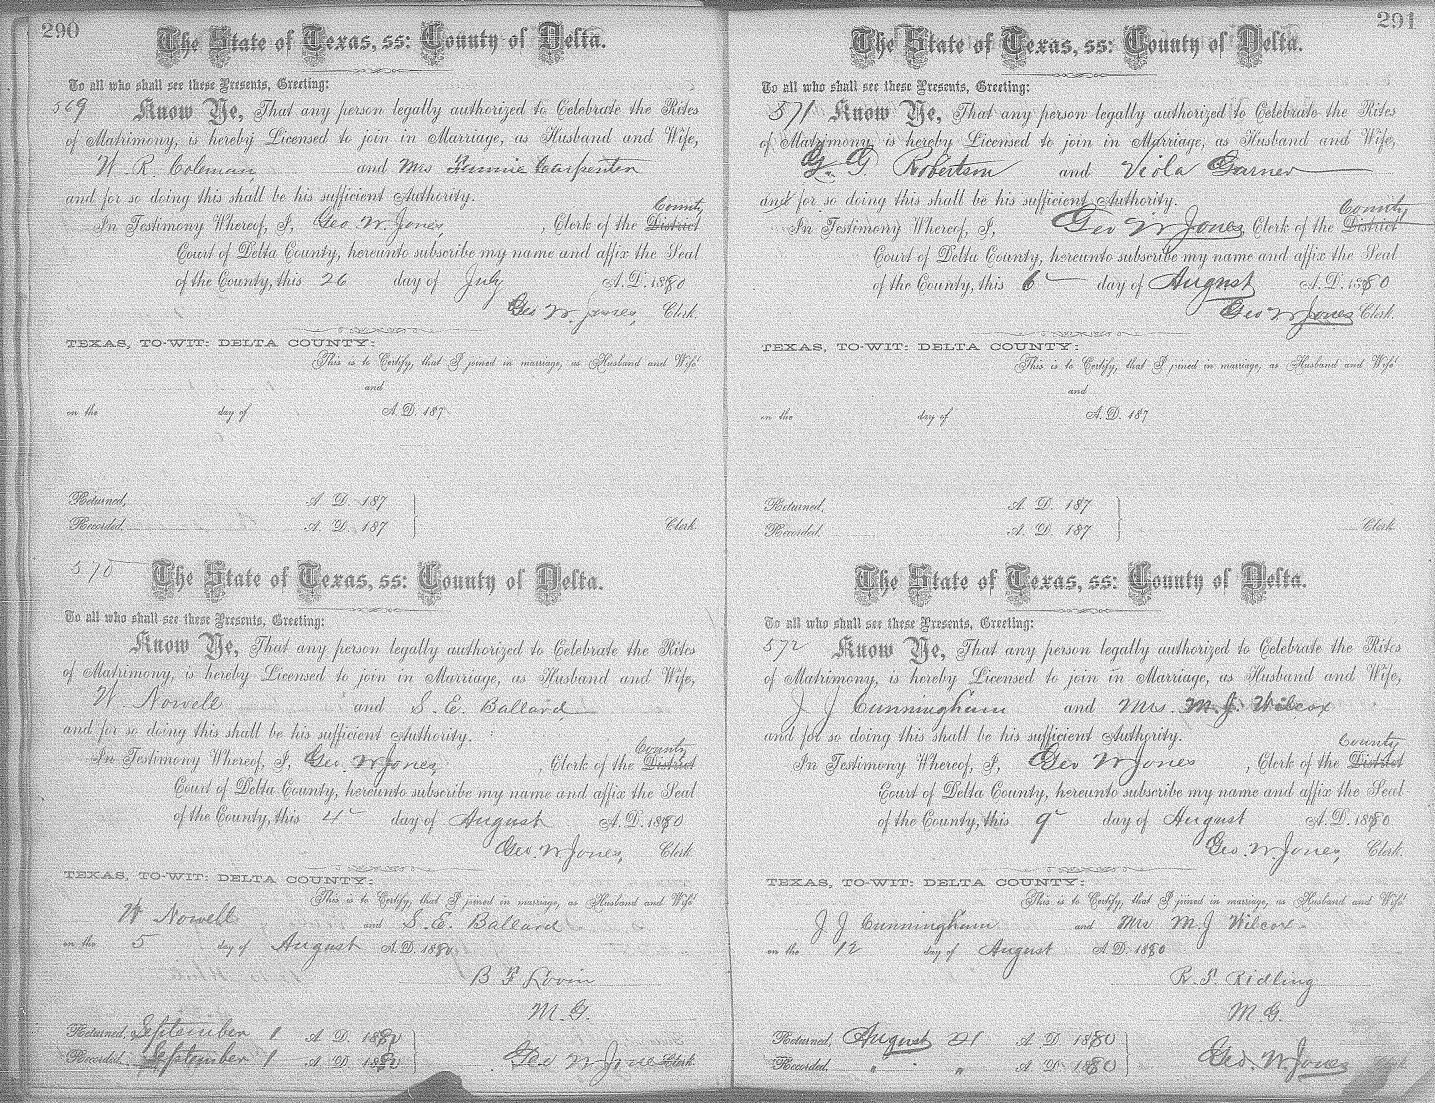 290
The State of Texas, ss: County of Delta.
To all who shall see these Presents, Greeting:
569 Know Ye, That any person legally authorized to Celebrate the Rites
of Matrimony, is hereby Licensed to join in Marriage, as Husband and Wife,
W. R. Coleman and Mrs Fennie Carpenter
and for so doing this shall be his sufficient Authority.
County
In Testimony Whereof, I, Geo. W. Jones, , Clerk of the District
Court of Delta County, hereunto subscribe my name and affix the Seal
of the County, this 26 day of July A. D. 1880
Geo W. Jones, Clerk.
TEXAS, TO-WIT: DELTA COUNTY:
This is to Certify, that I joined in marriage, as Husband and Wife
and
on the day of A. D. 187
Returned, A. D. 187
Recorded, A. D. 187 Clerk
570 The State of Texas, ss: County of Delta.
To all who shall see these Presents, Greeting:
Know Ye, That any person legally authorized to Celebrate the Rites
of Matrimony, is hereby Licensed to join in Marriage, as Husband and Wife,
W Nowell and S. E. Ballard
and for so doing this shall be his sufficient Authority.
County
In Testimony Whereof, I, Geo. W Jones, , Clerk of the District
Court of Delta County, hereunto subscribe my name and affix the Seal
of the County, this 4 day of August A. D. 1880
Geo. W Jones, Clerk.
TEXAS, TO-WIT: DELTA COUNTY:
This is to Certify, that I joined in marriage, as Husband and Wife
W Nowell and S. E. Ballard
on the 5 day of August A. D. 1880
B F Lovin
M. G.
Returned, September 1 A. D. 1880
Recorded, September 1 A. D. 1880 Geo W Jones Clerk
291
The State of Texas, ss: County of Delta.
To all who shall see these Presents, Greeting:
571 Know Ye, That any person legally authorized to Celebrate the Rites
of Matrimony, is hereby Licensed to join in Marriage, as Husband and Wife,
G. G Robertson and Viola Garner
and for so doing this shall be his sufficient Authority.
County
In Testimony Whereof, I, Geo W Jones Clerk of the District
Court of Delta County, hereunto subscribe my name and affix the Seal
of the County, this 6 day of August A. D. 1880
Geo W Jones Clerk.
TEXAS, TO-WIT: DELTA COUNTY:
This is to Certify, that I joined in marriage, as Husband and Wife
and
on the day of A. D. 187
Returned, A. D. 187
Recorded. A. D. 187 Clerk
The State of Texas, ss: County of Delta.
To all who shall see these Presents, Greeting:
572 Know Ye, That any person legally authorized to Celebrate the Rites
of Matrimony, is hereby Licensed to join in Marriage, as Husband and Wife,
J J Cunningham and Mrs. M. J. Wilcox
and for so doing this shall be his sufficient Authority.
County
In Testimony Whereof, I, Geo W Jones , Clerk of the District
Court of Delta County, hereunto subscribe my name and affix the Seal
of the County, this 9 day of August A. D. 1880
Geo. W. Jones, Clerk.
TEXAS, TO-WIT: DELTA COUNTY:
This is to Certify, that I joined in marriage, as Husband and Wife
J J Cunningham and Mrs M. J Wilcox
on the 12 day of August A. D. 1880
R. S. Ridling
M G.
Returned, August 21 A. D. 1880
Recorded. " " A. D. 1880 Geo. W. Jones